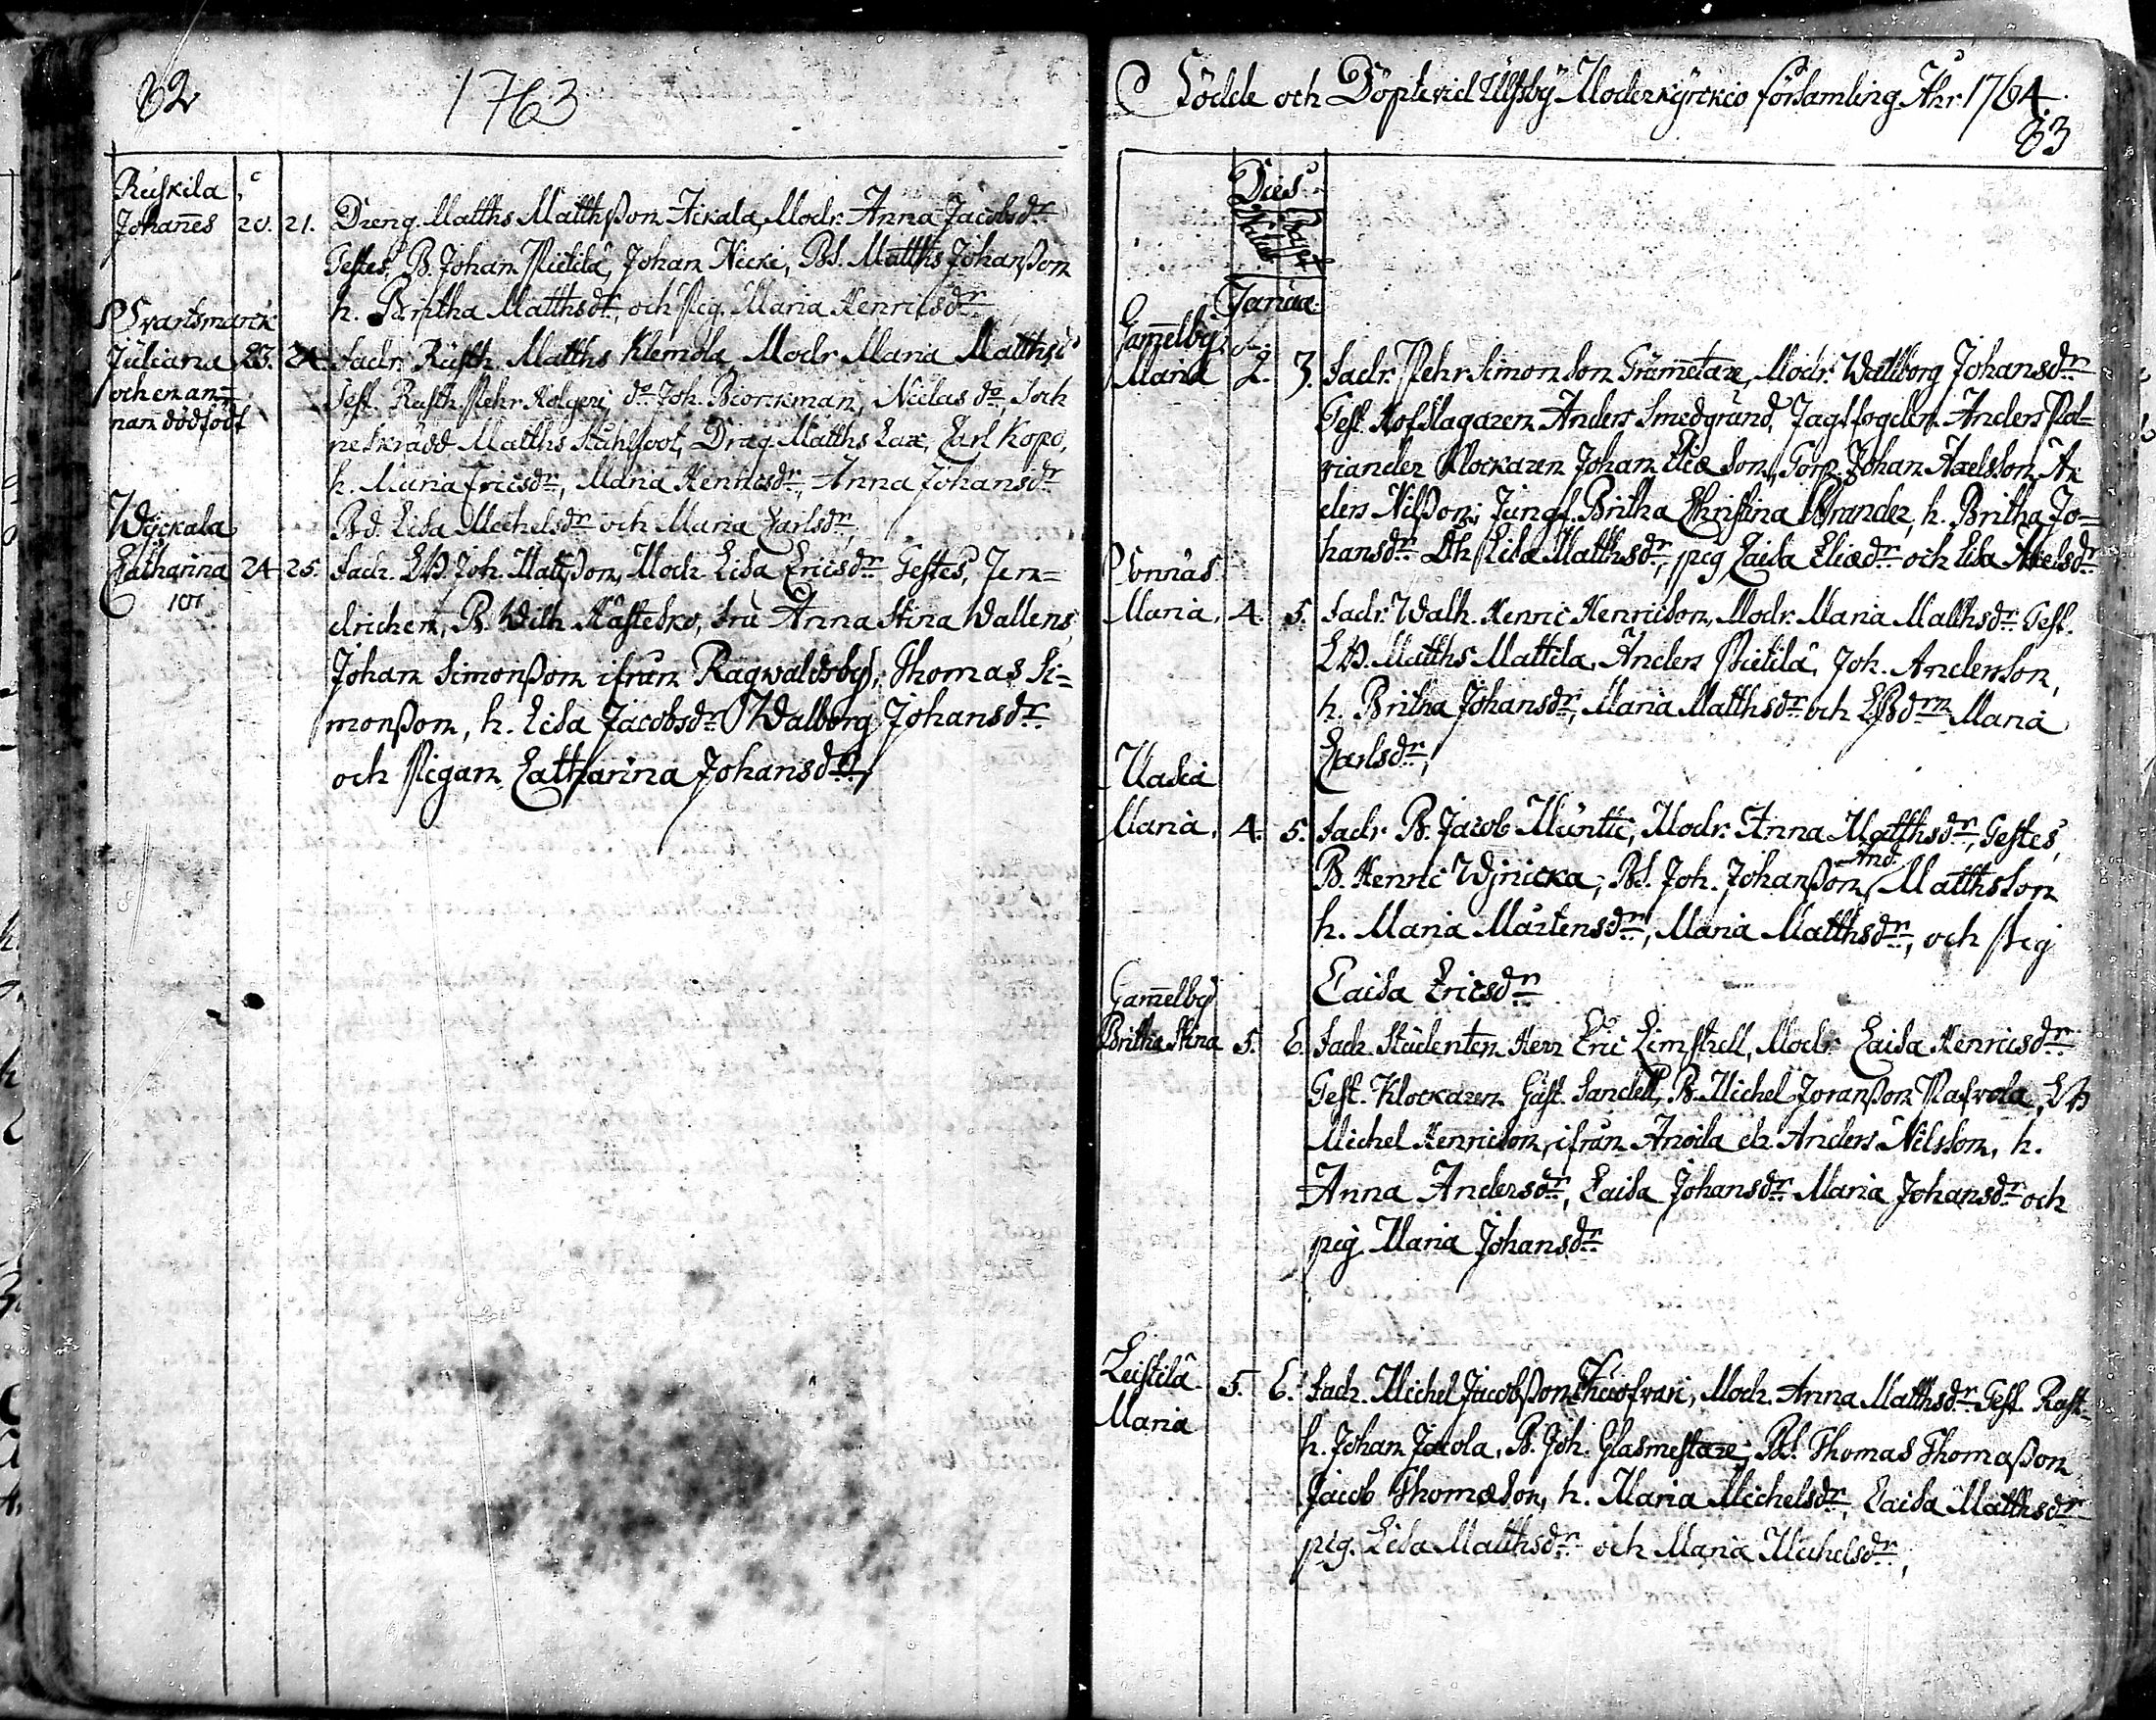 82 1763
Ruskila
Johan̄es 20. 21. Dreng. Matths Matthsson Ackala, Modr. Anna Jacobsdr
Testes, B. Johan Pietilä, Johan Nicki, Bd. Matths Johansson
h. Britha Matthsdr, och Pig. Maria Henricsdr
Svartsmarck
Juliana 23. 24. Fadr. Rusth. Matths Klemola, Modr Maria Matthsd
och en an-
Test. Rusth. Pehr Holgeri, do Joh. Biörckman, Niclas do, Soch
nan dödfödt
neskrädd Matths Stuhlfoot, Drag. Matths Lax, Carl Kopo,
h. Maria Ericsdr, Maria Henricsdr, Anna Johansdr
Wäckala
Bd. Lisa Michelsdr och Maria Carlsdr,
Catharina 24 25. Fadr. LB. Joh. Mattsson, Modr Lisa Ericsdr Testes, Jern=
107
drichen, B. Wilh Hästesko, Fru Anna Stina Wallens,
Johan Simonsson ifrån Ragwaldsby, Thomas Si=
monsson, h. Lisa Jacobsdr Walborg Johansdr
och Pigan Catharina Johansdr
Födde och Döpte vid Ulfsby Moderkyrckio församling Åhr 1764.
83
Dies
Natal Bapt
Januar.
Gam̄elby
Maria 2. 3. Fadr. Pehr Simonsson Grämetare, Modr. Wallborg Johansdr
Test. Hofslagaren Anders Smedgrund, Jagtfogden Anders Pol=
viander Klockaren Johan Eliæson, Torp. Johan Axelsson An
ders Nilsson; Jungf. Britha Christina Brander, h. Britha Jo=
hansdr Dh Lisa Matthsdr, pig Caisa Eliædr och Lisa Axelsdr
Sonnäs
Maria, 4. 5. Fadr. Walh. Henric Henricson, Modr. Maria Matthsdr. Test.
LB. Matths Mattila, Anders Pietilä, Joh. Andersson,
h. Britha Johansdr, Maria Matthsdr och LBdrn Maria
Carlsdr,
Vasia
Maria, 4. 5. Fadr B. Jacob Muntti, Modr. Anna Matthsdr, Testes,
B. Henric Wjnicka; Bd. Joh. Johansson, And. Matthsson
h. Maria Mårtensdr, Maria Matthsdr, och Pig
Caisa Ericsdr
Gam̄elby
Britha Stina 5. 6. Fadr. Studenten Herr Eric Limstell, Modr. Caisa Henricsdr
Test. Klockaren Gust. Sandell, B. Michel Joransson Pafvola, LB
Michel Henricson, ifrån Anoila ch. Anders Nilsson, h.
Anna Andersdr, Caisa Johansdr Maria Johansdr och
pig. Maria Johansdr
Leistilä 5. 6. Fadr. Michel Jacobsson, Modr. Anna Matthsdr Test. Rust=
Maria
h. Johan Jacola, B. Joh. Glasmestare, Bd. Thomas Thomasson
Jacob Thomæson, h. Maria Michelsdr, Caisa Matthsdr
pig. Lisa Matthsdr och Maria Michelsdr,